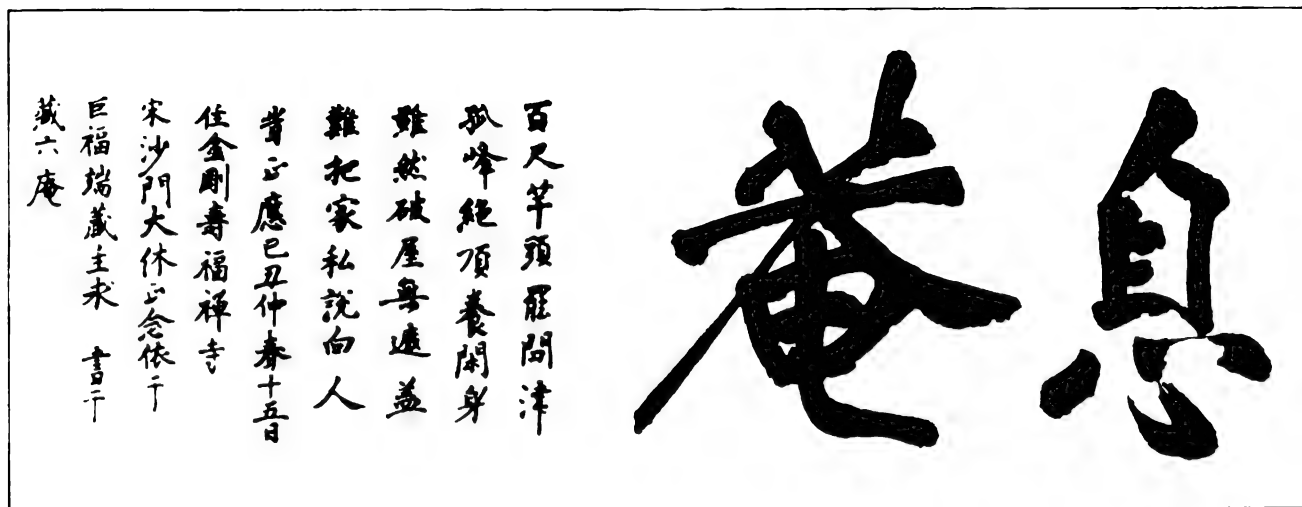 息菴
百尺竿頭罷問津
孤峰絕頂養閑身
雖然破屋無遮蓋
難把家私說向人
旹正應己丑仲春十五日
住金剛壽福禅寺
宋沙門大休正念依于
巨福瑞藏主求 書于
藏六庵